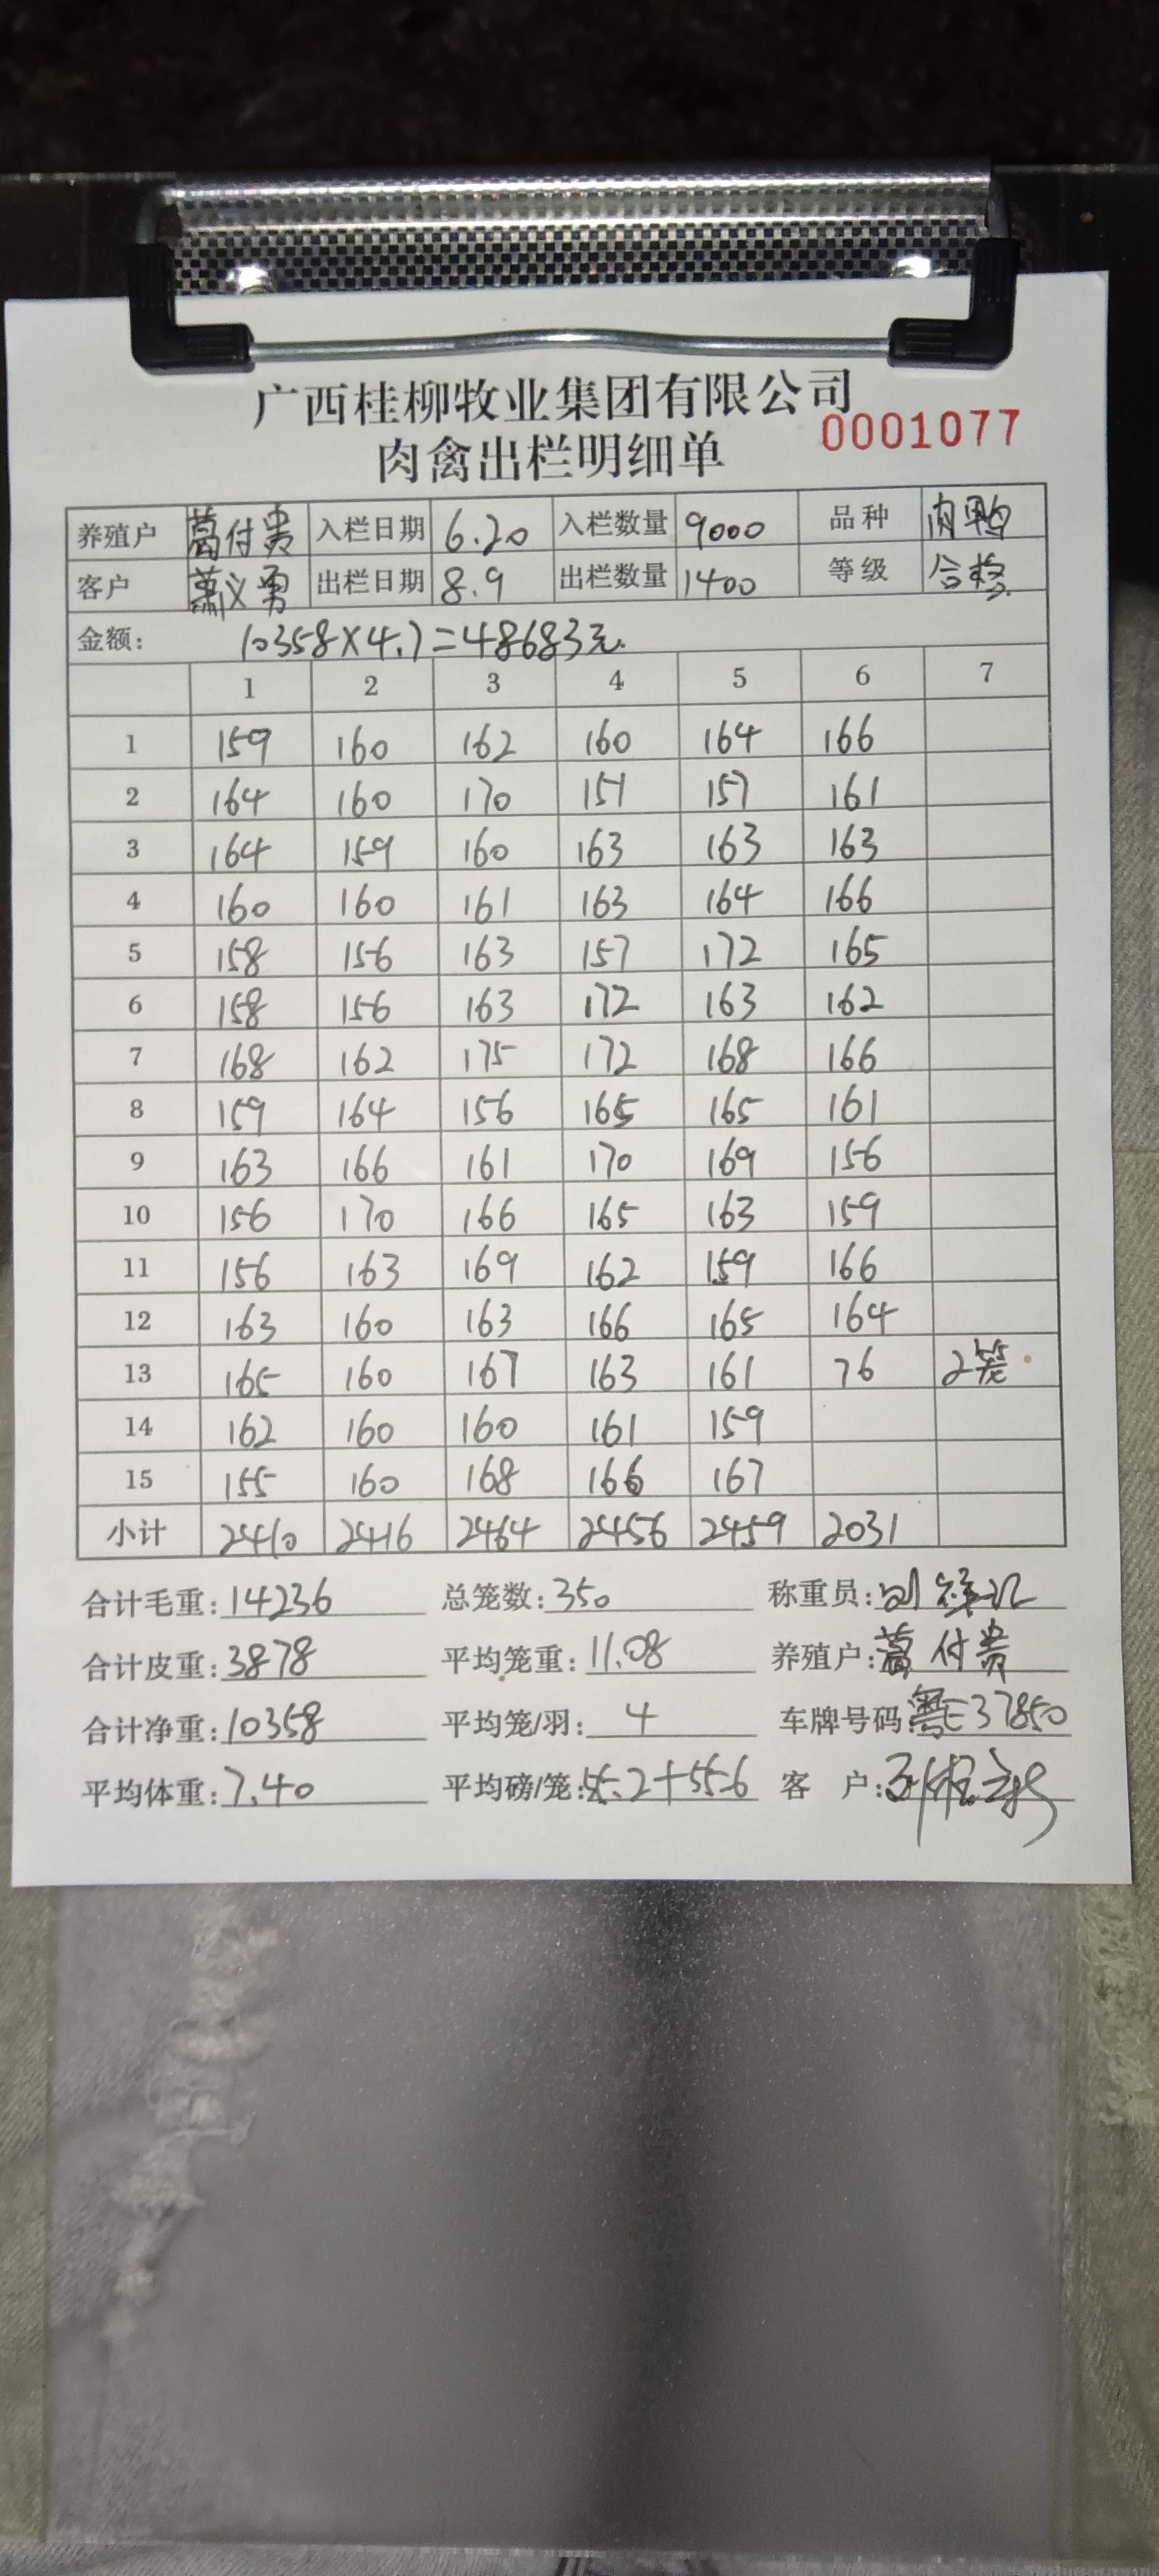 广西桂柳牧业集团有限公司
0001077
肉禽出栏明细单
养殖户 葛付贵 入栏日期 6.20 入栏数量 9000 品种 肉鸭
客户 萧义勇 出栏日期 8.9 出栏数量 1400 等级 合格
金额: 10358×4.7=48683元.
1 2 3 4 5 6 7
1 159 160 162 160 164 166
2 164 160 170 151 157 161
3 164 159 160 163 163 163
4 160 160 161 163 164 166
5 158 156 163 157 172 165
6 158 156 163 172 163 162
7 168 162 175 172 168 166
8 159 164 156 165 165 161
9 163 166 161 170 169 156
10 156 170 166 165 163 159
11 156 163 169 162 159 166
12 163 160 163 166 165 164
13 165 160 167 163 161 76 2笼
14 162 160 160 161 159
15 155 160 168 166 167
小计 2410 2416 2464 2456 2459 2031
合计毛重: 14236 总笼数: 350 称重员: 刘
合计皮重: 3878 平均笼重: 11.08 养殖户: 葛付贵
合计净重: 10358 平均笼/羽: 4 车牌号码: 粤E37850
平均体重: 7.40 平均磅/笼: 55.2+55.6 客 户: